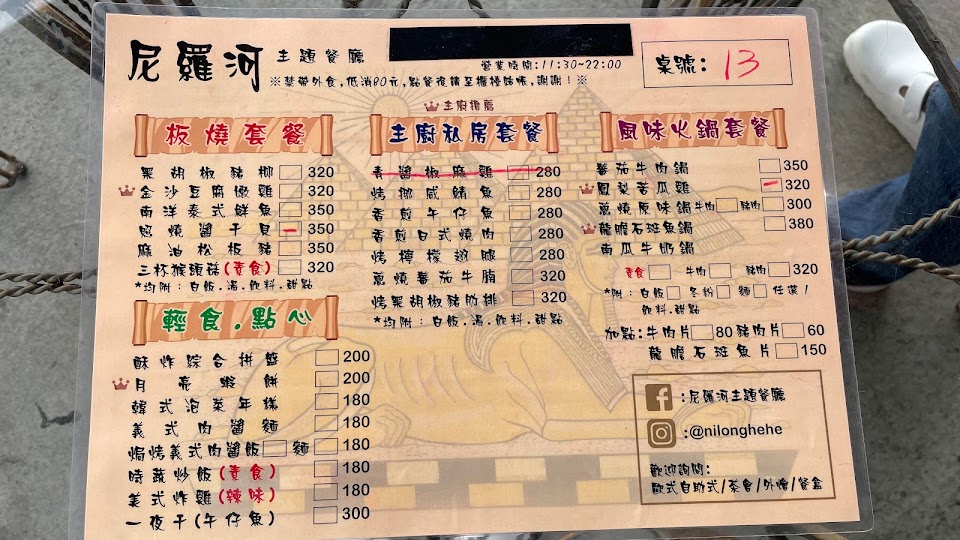 尼羅河 主題餐廳
營業時間:11:30~22:00
※禁帶外食,低消80元,點餐後請至櫃檯結帳,謝謝!※
桌號: 13
板燒套餐
黑胡椒豬柳 320
金沙豆腐嫩雞 320
南洋泰式鮮魚 350
照燒醬干貝 350
麻油松板豬 350
三杯猴頭菇(素食) 320
*均附:白飯.湯.飲料.甜點
輕食.點心
酥炸綜合拼盤 200
月亮蝦餅 200
韓式泡菜年糕 180
義式肉醬麵 180
焗烤義式肉醬飯 麵 180
時蔬炒飯(素食) 180
美式炸雞(辣味) 180
一夜干(午仔魚) 300
主廚推薦
主廚私房套餐
青醬椒麻雞 280
烤挪威鯖魚 280
香煎午仔魚 280
香煎日式燒肉 280
烤檸檬翅腿 280
蔥燒番茄牛腩 320
烤黑胡椒豬肋排 320
*均附:白飯.湯.飲料.甜點
風味火鍋套餐
蕃茄牛肉鍋 350
鳳梨苦瓜雞 320
蔥燒原味鍋 牛肉 豬肉 300
龍膽石斑魚鍋 380
南瓜牛奶鍋
素食 牛肉 豬肉 320
*附:白飯 冬粉 麵 任選/
飲料.甜點
加點:牛肉片 80 豬肉片 60
龍膽石斑魚片 150
:尼羅河主題餐廳
:@nilonghehe
歡迎詢問:
歐式自助式/茶會/外燴/餐盒